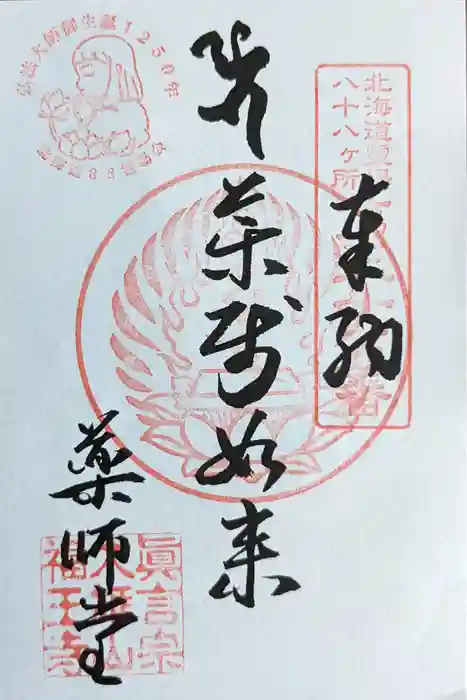 弘法大師御生誕1250年
北海道
八十八ヶ所
奉納
薬師如来
薬師堂
眞言宗
福王寺